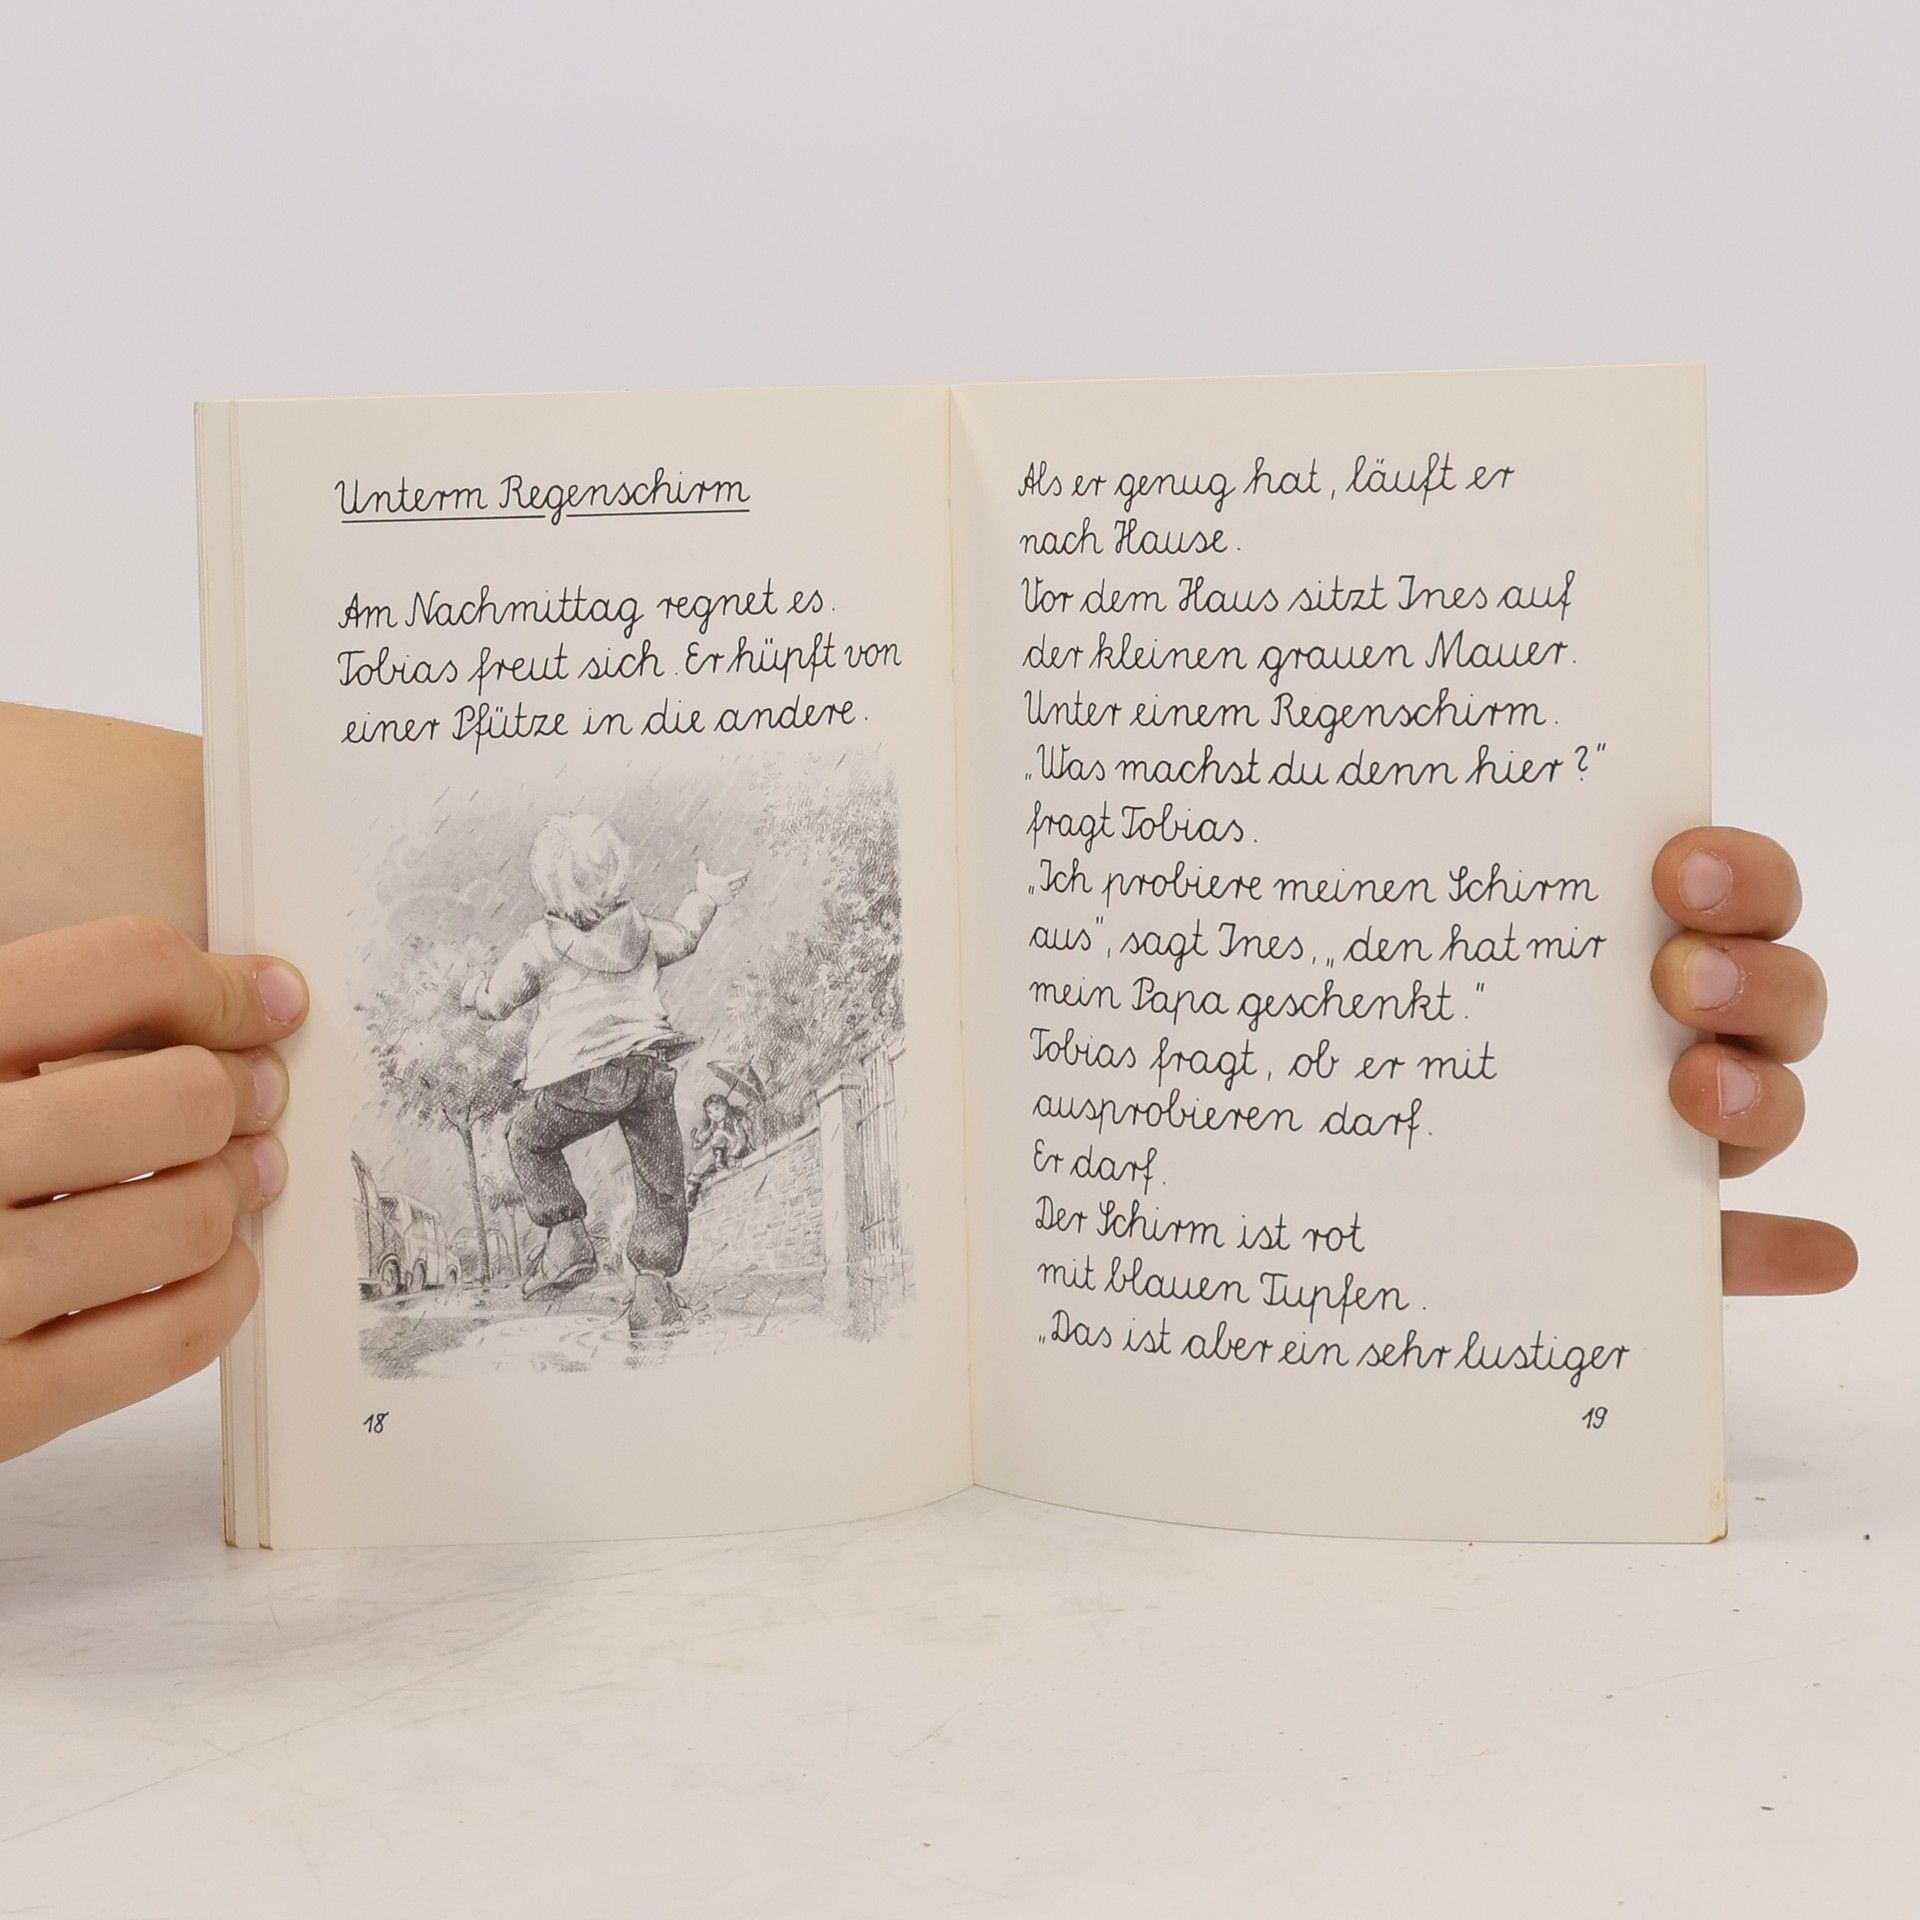 Unterm Regenschirm
Am Nachmittag regnet es.
Tobias freut sich. Er hüpft von
einer Pfütze in die andere.
18
Als er genug hat, läuft er
nach Hause.
Vor dem Haus sitzt Ines auf
der kleinen grauen Mauer.
Unter einem Regenschirm.
„Was machst du denn hier?“
fragt Tobias.
„Ich probiere meinen Schirm
aus“, sagt Ines, „den hat mir
mein Papa geschenkt.“
Tobias fragt, ob er mit
ausprobieren darf.
Er darf.
Der Schirm ist rot
mit blauen Tupfen.
„Das ist aber ein sehr lustiger
19